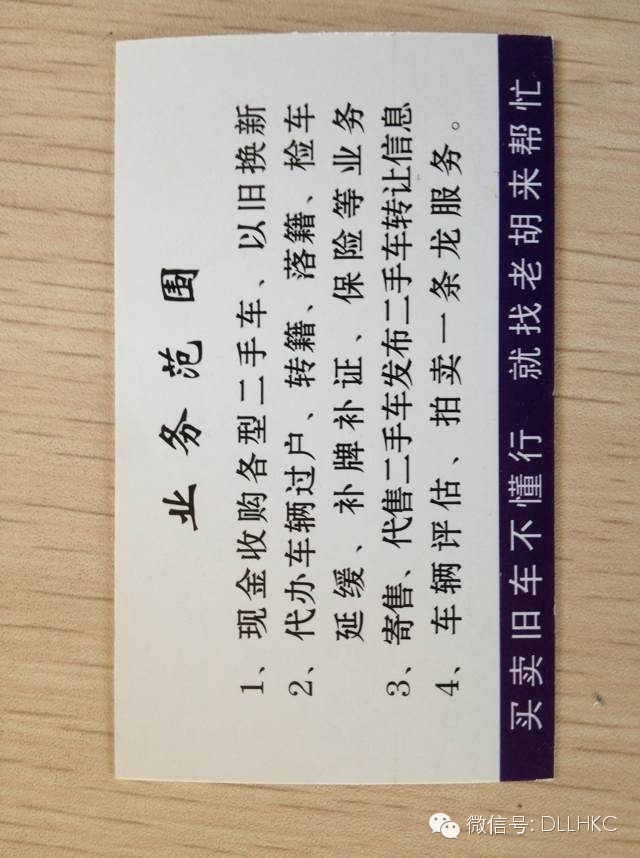 业务范围
1、现金收购各型二手车、以旧换新
2、代办车辆过户、转籍、落籍、检车
延缓、补牌补证、保险等业务
3、寄售、代售二手车发布二手车转让信息
4、车辆评估、拍卖一条龙服务。
买卖旧车不懂行 就找老胡来帮忙
微信号: DLLHKC